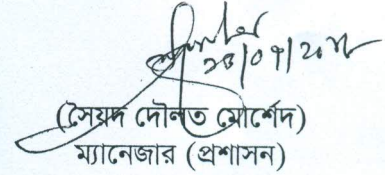 (সৈয়দ দৌলত মোর্শেদ)
ম্যানেজার (প্রশাসন)